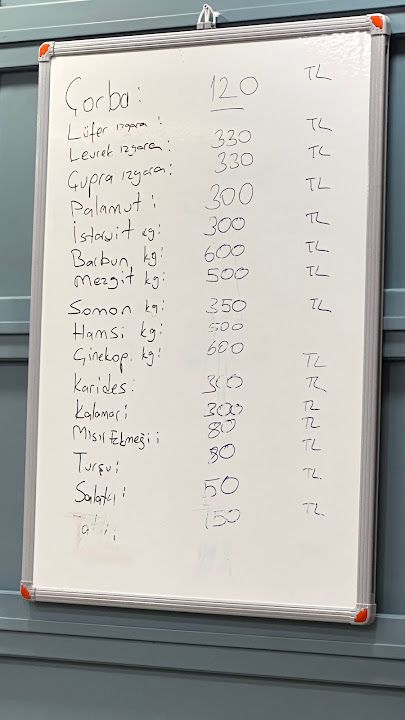 Çorba: 120 TL
Lüfer ızgara:
Levrek ızgara: 330 TL
Çupra ızgara: 330 TL
Palamut: 300 TL
İstavrit kg: 300 TL
Barbun kg: 600 TL
Mezgit kg: 500 TL
Somon kg: 350 TL
Hamsi kg: 500
Çinekop kg: 600 TL
Karides: 300 TL
Kalamar: 300 TL
Mısır Ekmeği: 80 TL
Turşu: 80 TL
Salata: 50 TL
150 TL